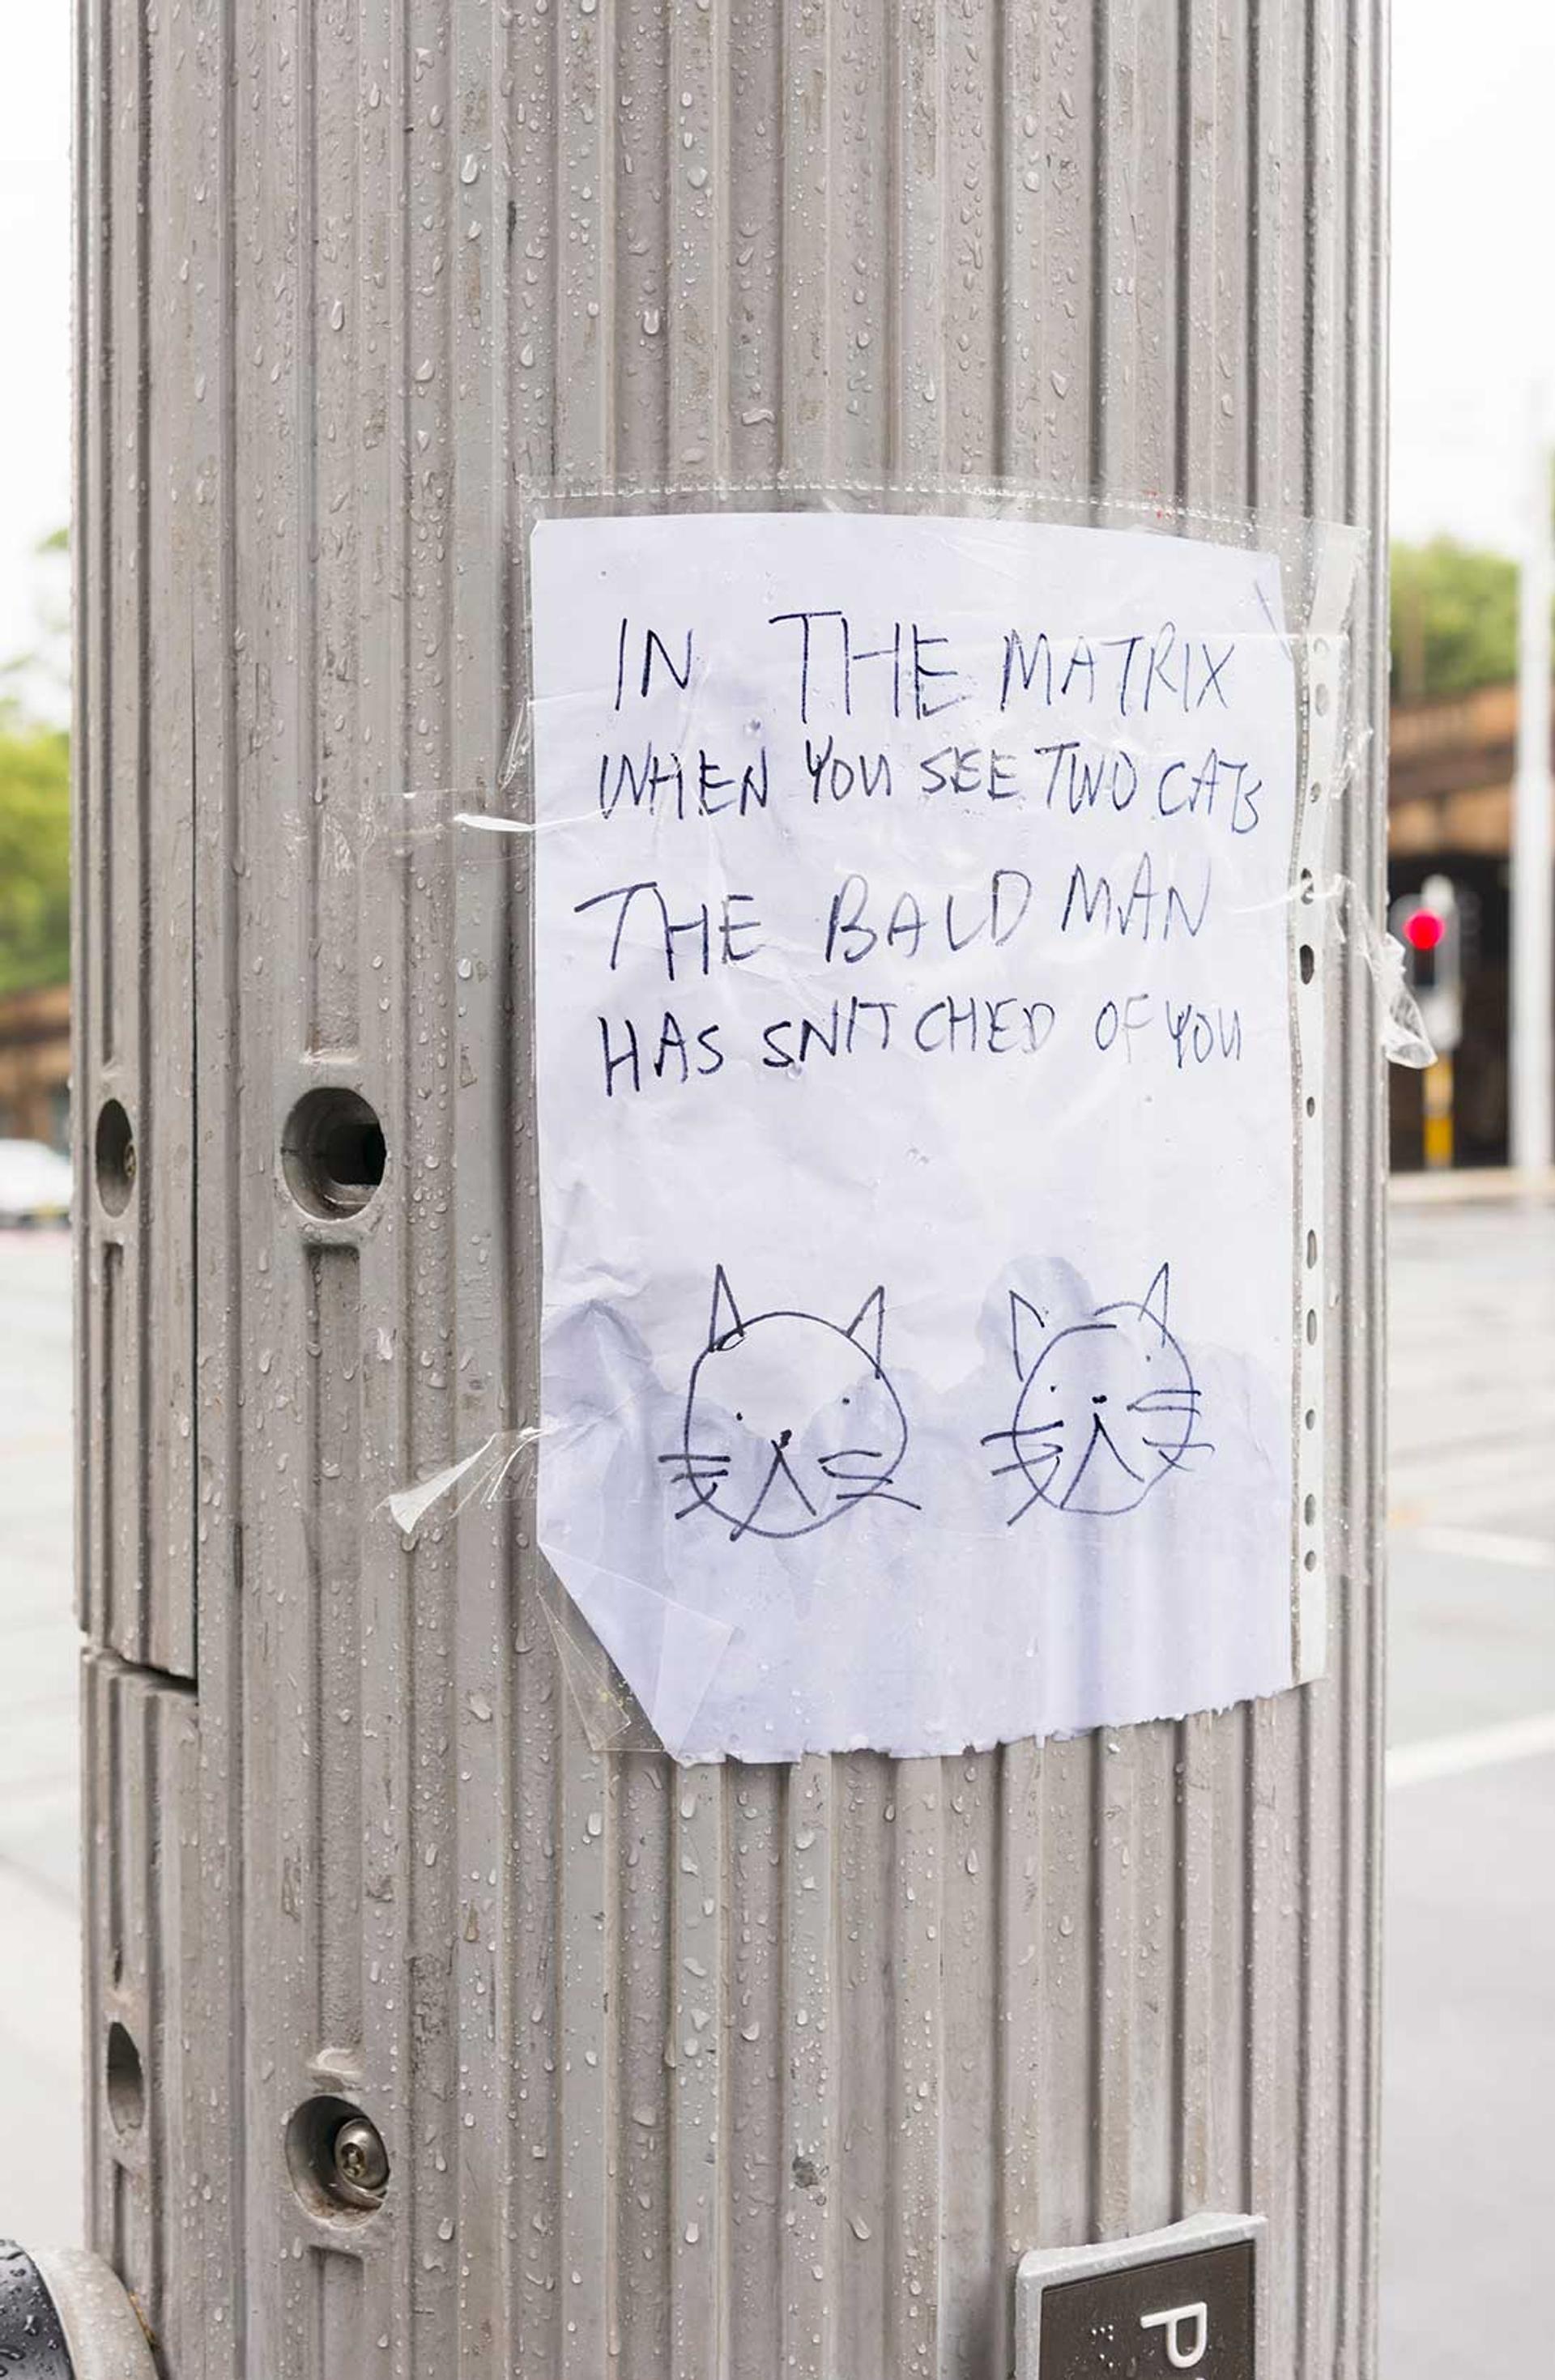 IN THE MATRIX
WHEN YOU SEE TWO CATS
THE BALD MAN
HAS SNITCHED OF YOU
P